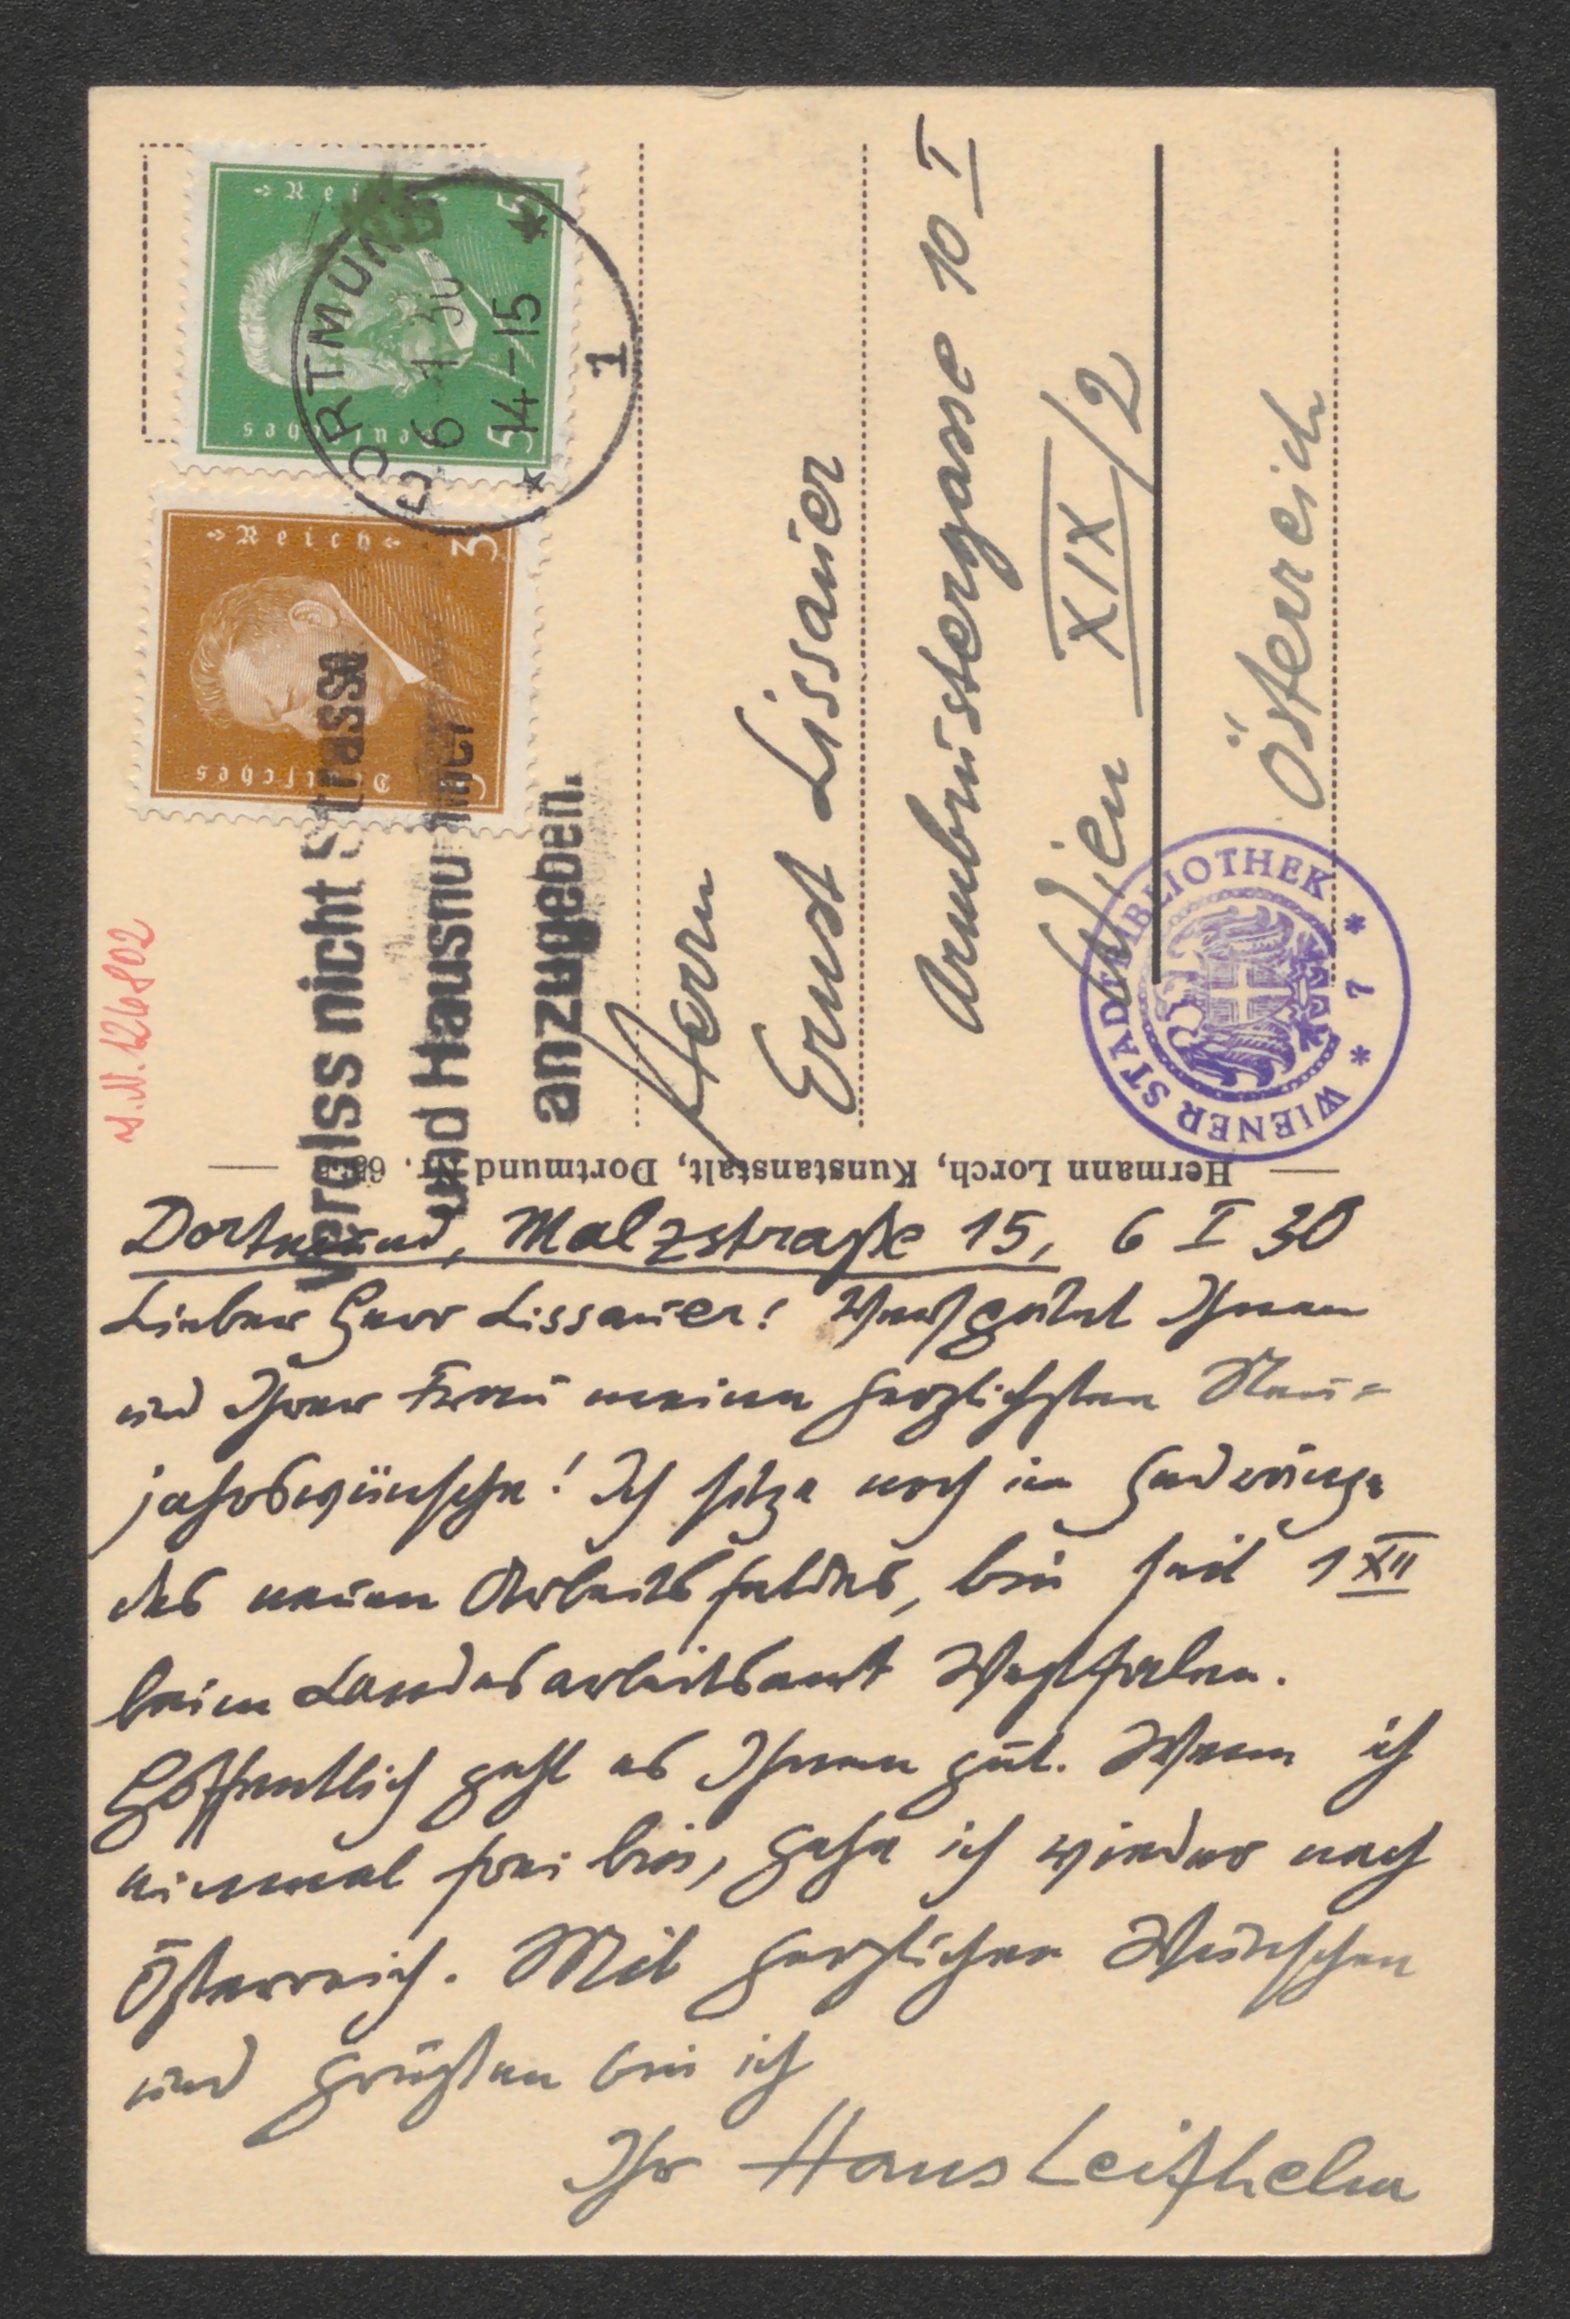 Dortmund, Malzstraße 15, 6 I 30
Lieber Herr Lissauer! Verspätet Ihnen
und Ihrer Frau meine herzlichsten Neu=
jahrswünsche! Ich sitze noch im Gedränge
des neuen Arbeitsfeldes, bin seit 1 XII
beim Landesarbeitsamt Westfalen.
Hoffentlich geht es Ihnen gut. Wenn ich
einmal frei bin, gehe ich wieder nach
Österreich. Mit herzlichen Wünschen
und Grüßen bin ich
Ihr Hans Leifhelm
Herrn
Ernst Lissauer
Armbrustergasse 10 I
Wien XIX/2
Österreich
Hermann Lorch, Kunstanstalt, Dortmund
Vergiss nicht Strasse
und Hausnummer
anzugeben.
DORTMUND
6 1 30
14-15
1
Deutsches Reich
5 5
Deutsches Reich
3 3
WIENER STADTBIBLIOTHEK
* 7 *
I.N. 126802